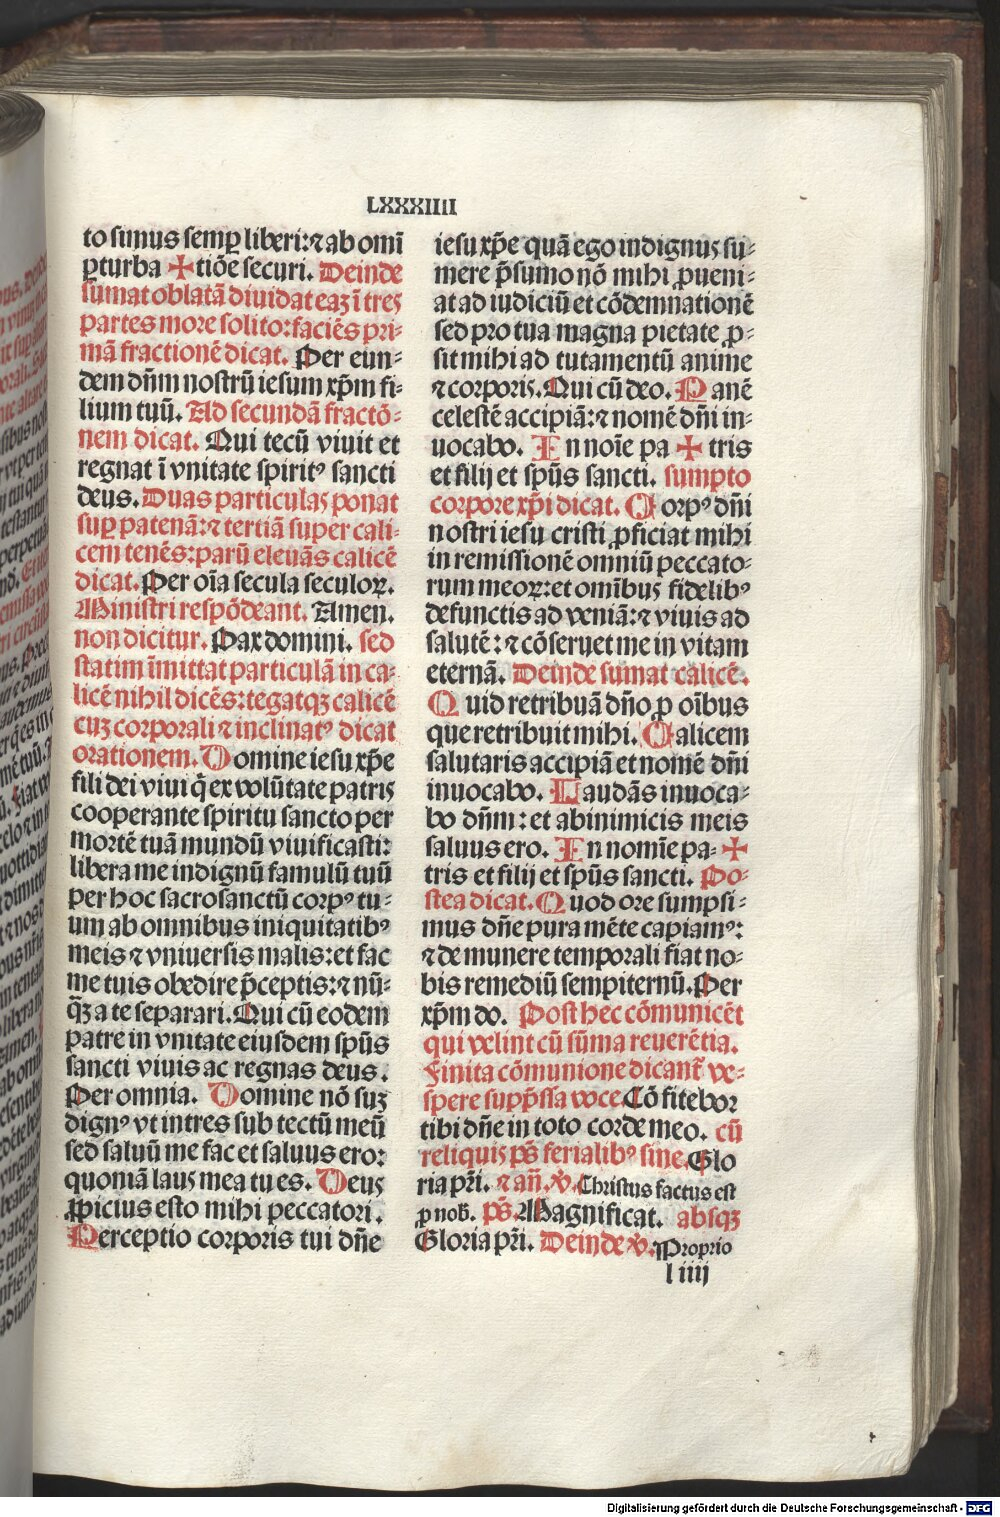 LXXXIIII
to simus semꝑ liberi:⁊ ab omī
ꝑturba ✠ tiõe securi. Deinde
sumat oblatã diuidat eaꝫ ī tres
partes more solito: faciẽs pri-
mã fractionẽ dicat. Per eun-
dem dñm nostrũ iesum xp̃m fi-
lium tuũ. Ad secundã fractõ-
nem dicat. Qui tecũ viuit et
regnat ī vnitate spiritꝰ sancti
deus. Duas particulas ponat
suꝑ patenã:⁊ tertiã super cali-
cem tenẽs: parũ eleuãs calicẽ
dicat. Per oĩa secula seculoꝝ.
Ministri respõdeant. Amen.
non dicitur. Pax domini. sed
statim ĩmittat particulã in ca-
licẽ nihil dicẽs: tegatqꝫ calicẽ
cuꝫ corporali ⁊ inclinatꝰ dicat
orationem. Domine iesu xp̃e
fili dei viui q̃ ex volũtate patris
cooperante spiritu sancto per
mortẽ tuã mundũ viuificasti:
libera me indignũ famulũ tuũ
per hoc sacrosanctũ corpꝰ tu-
um ab omnibus iniquitatibꝰ
meis ⁊ vniuersis malis: et fac
me tuis obedire p̃ceptis:⁊ nũ-
q̃ꝫ a te separari. Qui cũ eodem
patre in vnitate eiusdem sp̃us
sancti viuis ac regnas deus.
Per omnia. Domine nõ suꝫ
dignꝰ vt intres sub tectũ meũ
sed saluũ me fac et saluus ero:
quoniã laus mea tu es. Deus
ꝓpicius esto mihi peccatori.
Perceptio corporis tui dñe
iesu xp̃e quã ego indignus sũ-
mere p̃sumo nõ mihi ꝓueni-
at ad iudiciũ et cõdemnationẽ
sed pro tua magna pietate ꝓ-
sit mihi ad tutamentũ anime
⁊ corporis. Qui cũ deo. Panẽ
celestẽ accipiã:⁊ nomẽ dñi in-
uocabo. In noĩe pa ✠ tris
et filij et sp̃us sancti. sumpto
corpore xp̃i dicat. Corpꝰ dñi
nostri iesu cristi ꝓficiat mihi
in remissionẽ omniũ peccato-
rum meoꝝ: et omĩbus fidelibꝰ
defunctis ad veniã:⁊ viuis ad
salutẽ:⁊ cõseruet me in vitam
eternã. Deinde sumat calicẽ.
Quid retribuã dño ꝓ oĩbus
que retribuit mihi. Calicem
salutaris accipiã et nomẽ dñi
inuocabo. Laudãs inuoca-
bo dñm: et ab inimicis meis
saluus ero. In nomĩe pa- ✠
tris et filij et sp̃us sancti. Po-
stea dicat. Quod ore sumpsi-
mus dñe pura mẽte capiamꝰ:
⁊ de munere temporali fiat no-
bis remediũ sempiternũ. Per
xp̃m do. Post hec cõmunicẽt
qui velint cũ sũma reuerẽtia.
Finita cõmunione dicant̃ ve-
spere supp̃ssa voce. Cõfitebor
tibi dñe in toto corde meo. cũ
reliquis pš ferialibꝰ sine. Glo
ria pr̃i. ⁊ añ. ℣. Christus factus est
ꝓ nob̃. pš. Magnificat. absqꝫ
Gloria pr̃i. Deinde ℣. Proprio
l iiij
Digitalisierung gefördert durch die Deutsche Forschungsgemeinschaft - DFG